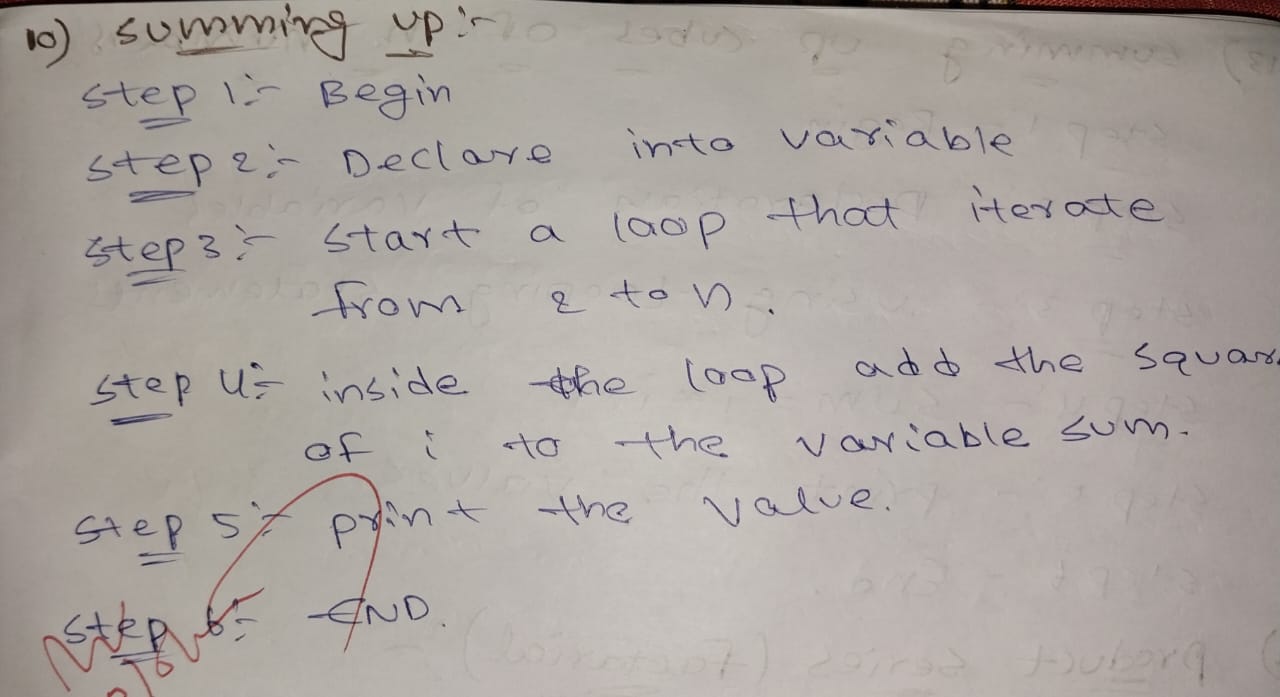 10) summing up :-
step 1 :- Begin
step 2 :- Declare into variable
step 3 :- start a loop that iterate
from 2 to n.
step 4 :- inside the loop add the squar
of i to the variable sum.
step 5 :- print the value.
step 6 :- END.